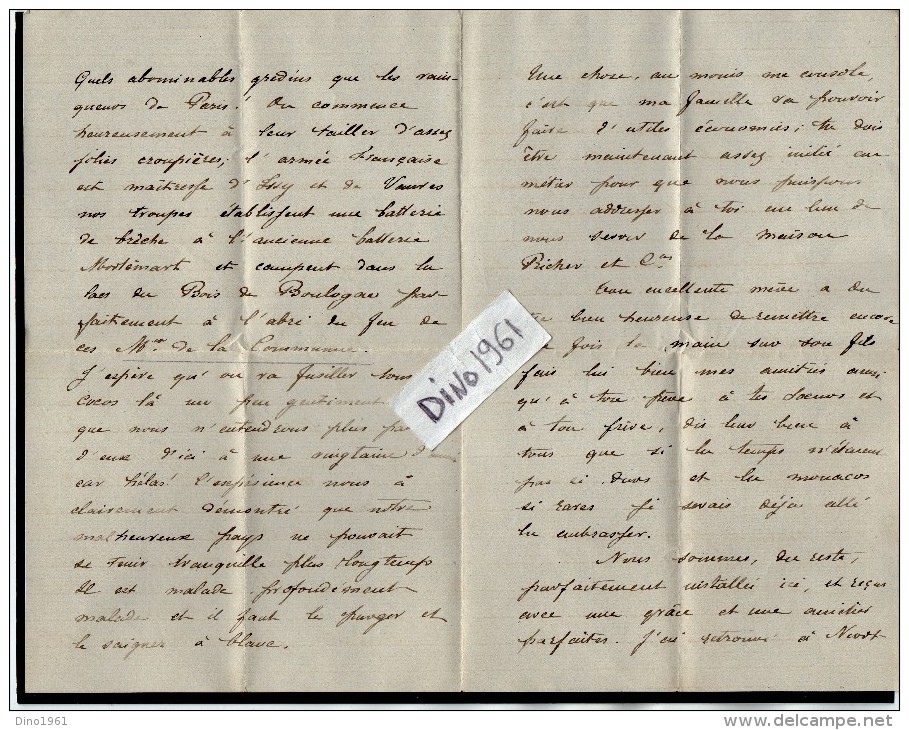 Quels abominables gredins que les vain-
queurs de Paris! On commence
heureusement à leur tailler d'assez
jolies croupières; l'armée Française
est maîtresse d'Issy et de Vanves
nos troupes établissent une batterie
de brèche à l'ancienne batterie
Mortemart et campent dans le
lacs du Bois de Boulogne par-
faitement à l'abri du feu de
ces Mrs de la Commune.
J'espère qu'on va fusiller tous
cocos là un peu gentiment
que nous n'entendrons plus
d'eux d'ici à une vingtaine
car hélas! l'expérience nous a
clairement démontré que notre
malheureux pays ne pouvait
se tenir tranquille plus longtemps
Il est malade profondément
malade et il faut le purger et
le saigner à blanc.
Une chose, au moins me console,
c'est que ma famille va pouvoir
faire d'utiles économies; tu dois
être maintenant assez initié au
métier pour que nous puissions
nous adresser à toi au lieu de
nous servir de la maison
Richer et Cie
Ton excellente mère a du
être bien heureuse de remettre encore
fois la main sur son fils
fais lui bien mes amitiés ainsi
qu'à ton père à tes soeurs et
à ton frère, dis leur bien à
tous que si les temps n'étaient
pas si durs et les monacos
si rares je serais déjà allé
les embrasser.
Nous sommes, du reste,
parfaitement installés ici, et reçus
avec une grâce et une amitié
parfaites. J'ai retrouvé à Niort
DiNO1961
Dino1961
http://www.delcampe.net